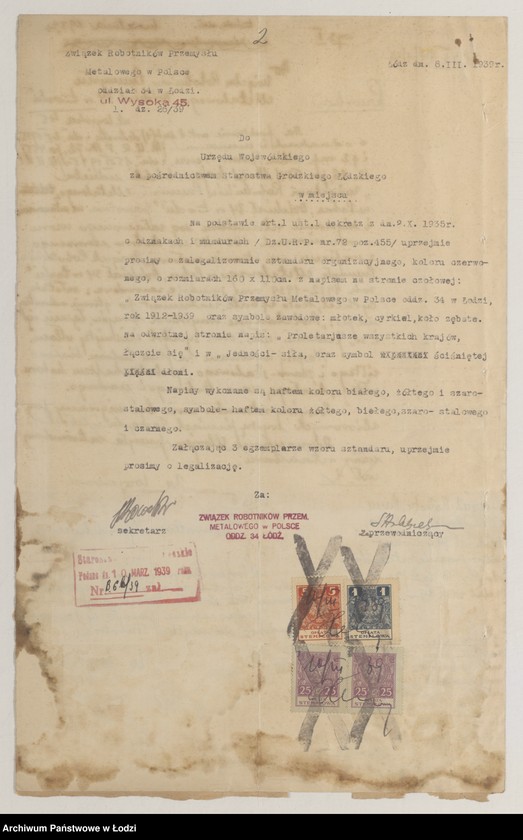 2
Związek Robotników Przemysłu
Metalowego w Polsce
oddział 34 w Łodzi.
ul. Wysoka 45.
L. dz. 28/39
Łódz dn. 8.III. 1939r.
Do
Urzędu Wojewódzkiego
za pośrednictwem Starostwa Grodzkiego Łódzkiego
w miejscu
Na podstawie art.1 ust.1 dekretz z dn.2.X. 1935r.
o odznakach i mundurach / Dz.U.R.P. nr.72 poz.455/ uprzejmie
prosimy o zalegalizowanie sztandaru organizacyjnego, koloru czerwo-
nego, o rozmiarach 165 x 110cm. z napisem na stronie czołowej:
„ Związek Robotników Przemysłu Metalowego w Polsce oddz. 34 w Łodzi,
rok 1912-1939 oraz symbole zawodowe: młotek, cyrkiel,koło zębate.
na odwrotnej stronie napis: „ Proletarjusze wszystkich krajów,
łączcie się" i w „ Jedności- siła, oraz symbol ściśniętej
dłoni.
Napisy wykonane są haftem koloru białego, żółtego i szaro-
stalowego, symbole- haftem koloru żółtego, białego,szaro- stalowego
i czarnego.
Załączając 3 egzemplarze wzoru sztandaru, uprzejmie
prosimy o legalizację.
Za:
sekretarz
ZWIĄZEK ROBOTNIKÓW PRZEM.
METALOWEGO w POLSCE
ODDZ. 34 ŁÓDŹ,
Zaprzewodniczący
Podano dn. 10 MARZ. 1939
Nr zał
5 5
1 1
OPŁATA
STEMPLOWA
OPŁATA
STEMPLOWA
25 25
25 25
STEMPLOWA
STEMPLOWA
Archiwum Państwowe w Łodzi